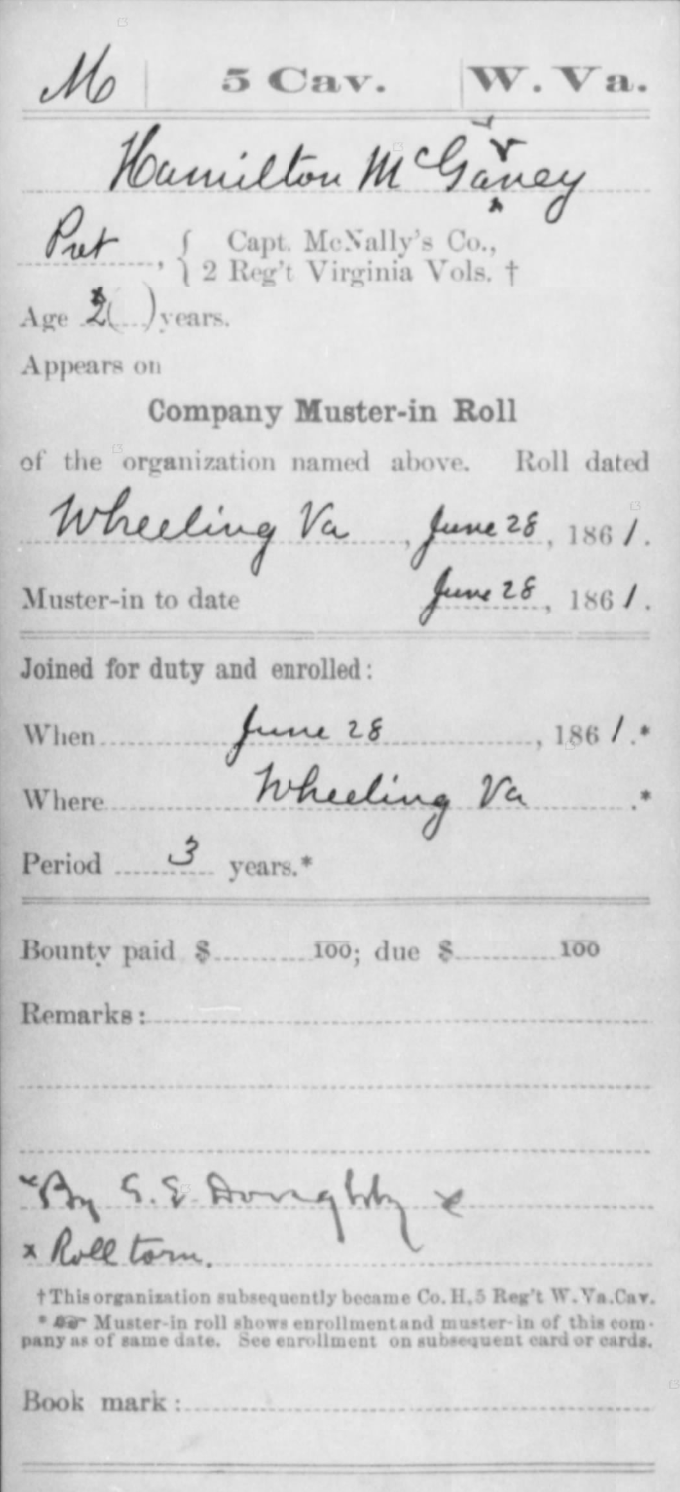 M 5 Cav. W. Va.
Hamilton McGaney
Pvt, { Capt. McNally's Co.,
2 Reg't Virginia Vols. †
Age 2( ) years.
Appears on
Company Muster-in Roll
of the organization named above. Roll dated
Wheeling Va, June 28, 1861.
Muster-in to date June 28, 1861.
Joined for duty and enrolled:
When June 28, 1861.*
Where Wheeling Va.*
Period 3 years.*
Bounty paid $ 100; due $ 100
Remarks:
x By S. E. Doughty x
x Roll torn.
† This organization subsequently became Co. H, 5 Reg't W. Va. Cav.
* Muster-in roll shows enrollment and muster-in of this com-
pany as of same date. See enrollment on subsequent card or cards.
Book mark: